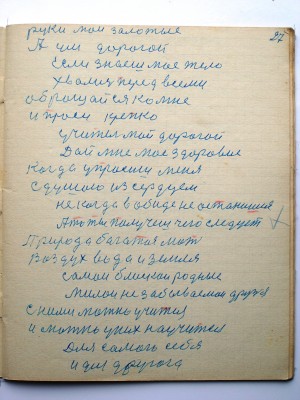 27
руки мои залотые
А ты дорогой
Если знаеш мое тело
Хвалиш перед всеми
оброщайся ко мне
и проси крепко
учитель мой дорогой
Дай мне мое здоровие
Когда упросиш меня
С душою из сердцем
некогда вобиде не останишся
А то ты получеш чего следует
Природа багатая мать
Воздух вода и земля
самои близкаи родные
Милои не забываемаи друзя
Сними можно учится
и можно уних научится
Для самого себя
и для другога